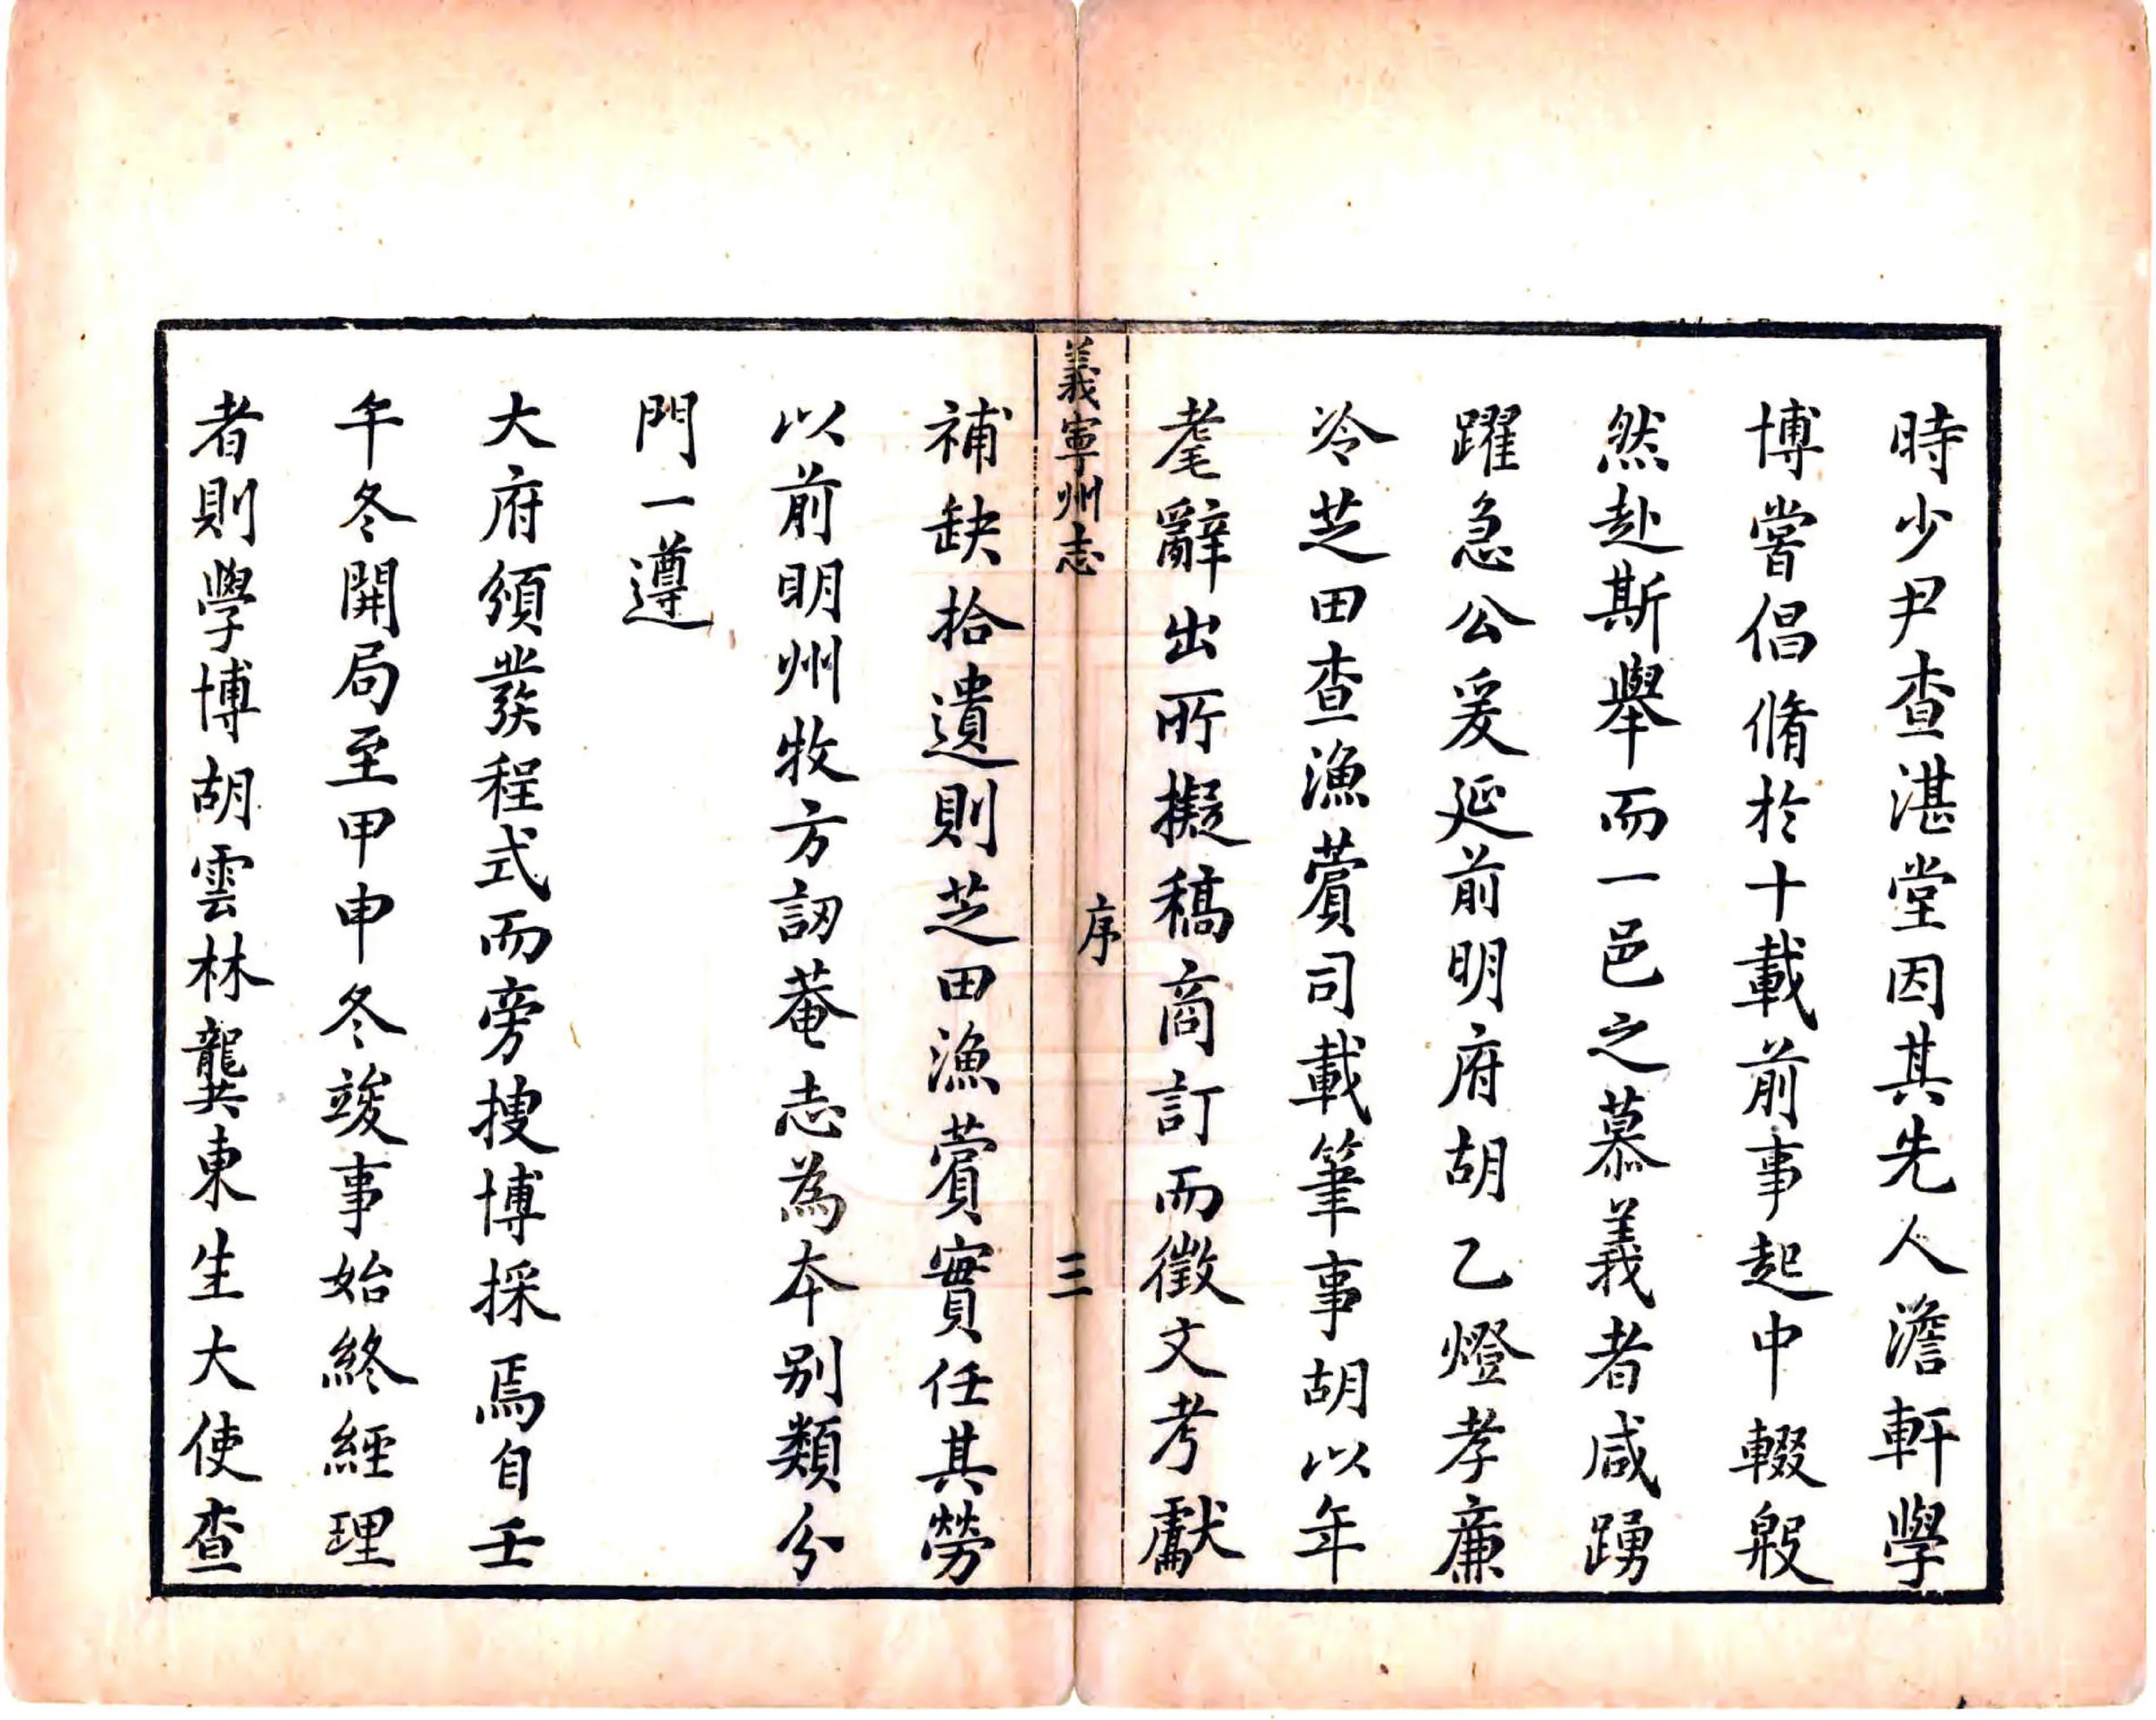 時少尹查湛堂因其先人澹軒學
博嘗倡脩於十載前事起中輟毅
然赴斯舉而一邑之慕義者咸踴
躍急公爰延前明府胡乙燈孝廉
冷芝田查漁薲司載筆事胡以年
耄辭出所擬稿商訂而徵文考獻
義寧州志
序
三
補缺拾遺則芝田漁薲實任其勞
以前明州牧方訒菴志為本別類分
門一遵
大府頒發程式而旁搜博採焉自壬
午冬開局至甲申冬竣事始終經理
者則學博胡雲林龔東生大使查